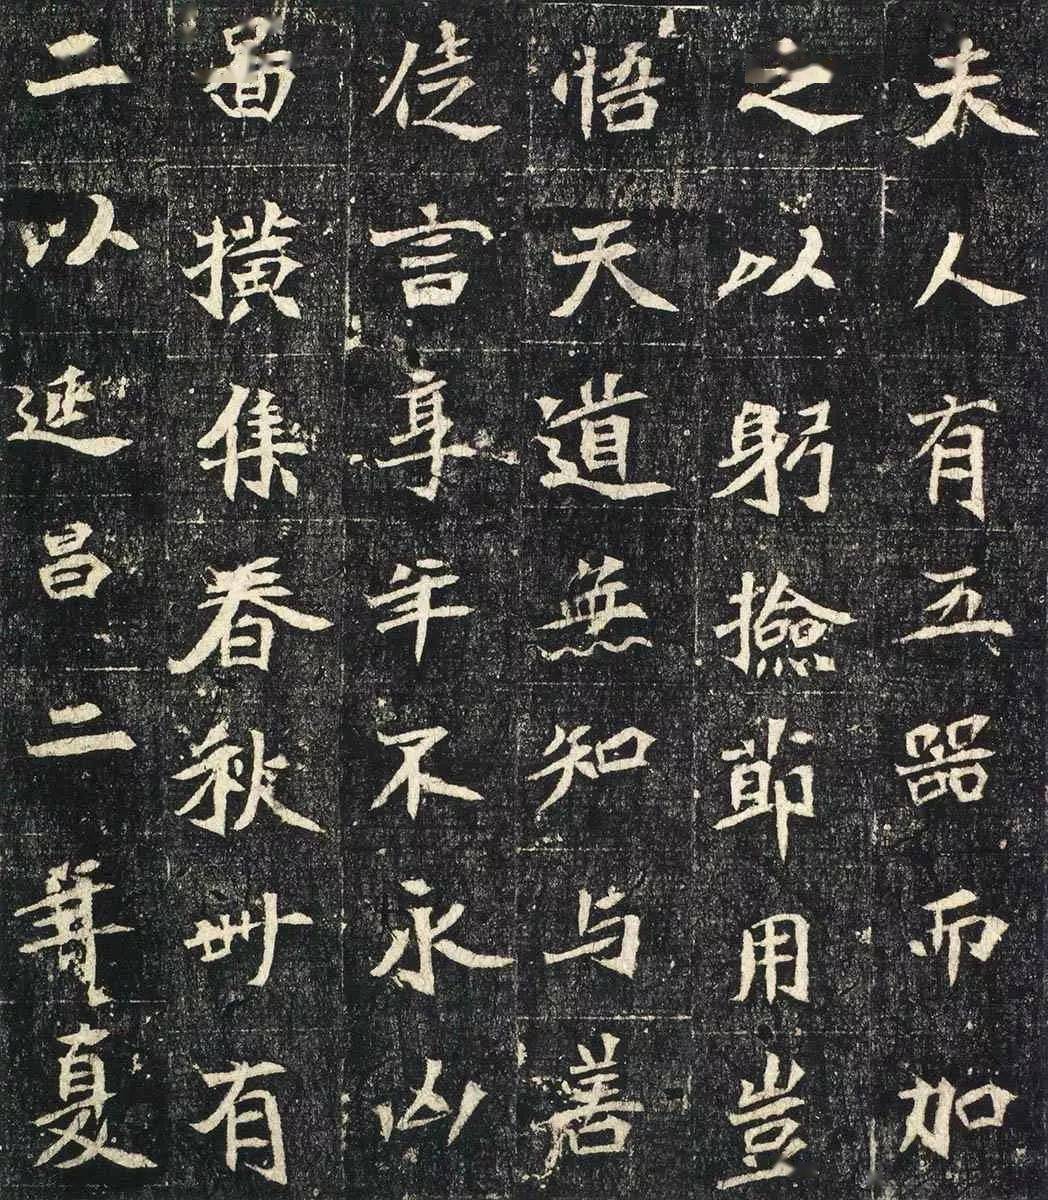 夫人有五器而加
之以躬撿節用豈
悟天道無知与善
徒言享年不永凶
啚橫集春秋卌有
二以延昌二年夏